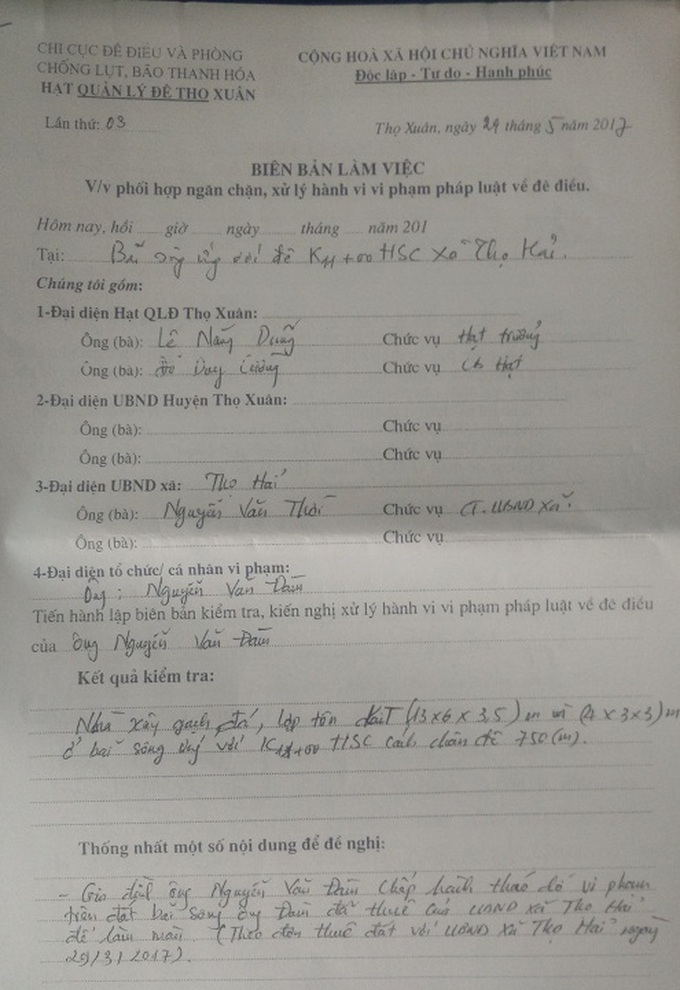 CHI CỤC ĐÊ ĐIỀU VÀ PHÒNG
CHỐNG LỤT, BÃO THANH HÓA
HẠT QUẢN LÝ ĐÊ THỌ XUÂN
CỘNG HOÀ XÃ HỘI CHỦ NGHĨA VIỆT NAM
Độc lập - Tự do - Hạnh phúc
Lần thứ: 03
Thọ Xuân, ngày 29 tháng 5 năm 2017
BIÊN BẢN LÀM VIỆC
V/v phối hợp ngăn chặn, xử lý hành vi vi phạm pháp luật về đê điều.
Hôm nay, hồi ...... giờ ...... ngày ...... tháng ...... năm 201
Tại: Bãi sông ứng với đê K11+00 HSC Xã Thọ Hải.
Chúng tôi gồm:
1-Đại diện Hạt QLĐ Thọ Xuân:
Ông (bà): Lê Năng Dũng Chức vụ Hạt trưởng
Ông (bà): Đỗ Duy Cường Chức vụ Cb Hạt
2-Đại diện UBND Huyện Thọ Xuân:
Ông (bà): Chức vụ
Ông (bà): Chức vụ
3-Đại diện UBND xã: Thọ Hải
Ông (bà): Nguyễn Văn Thới Chức vụ CT. UBND Xã.
Ông (bà): Chức vụ
4-Đại diện tổ chức/ cá nhân vi phạm:
Ông: Nguyễn Văn Đàm
Tiến hành lập biên bản kiểm tra, kiến nghị xử lý hành vi vi phạm pháp luật về đê điều
của ông Nguyễn Văn Đàm
Kết quả kiểm tra:
Nhà xây gạch, đá, lợp tôn (13x6x3,5)m và (4x3x3)m
ở bãi sông ứng với K11+00 HSC cách chân đê 750(m).
Thống nhất một số nội dung để đề nghị:
- Gia đình ông Nguyễn Văn Đàm chấp hành tháo dỡ vi phạm
trên đất bãi sông ông Đàm đã thuê của UBND xã Thọ Hải
để làm màu (Theo đơn thuê đất với UBND Xã Thọ Hải ngày
29/3/2017).